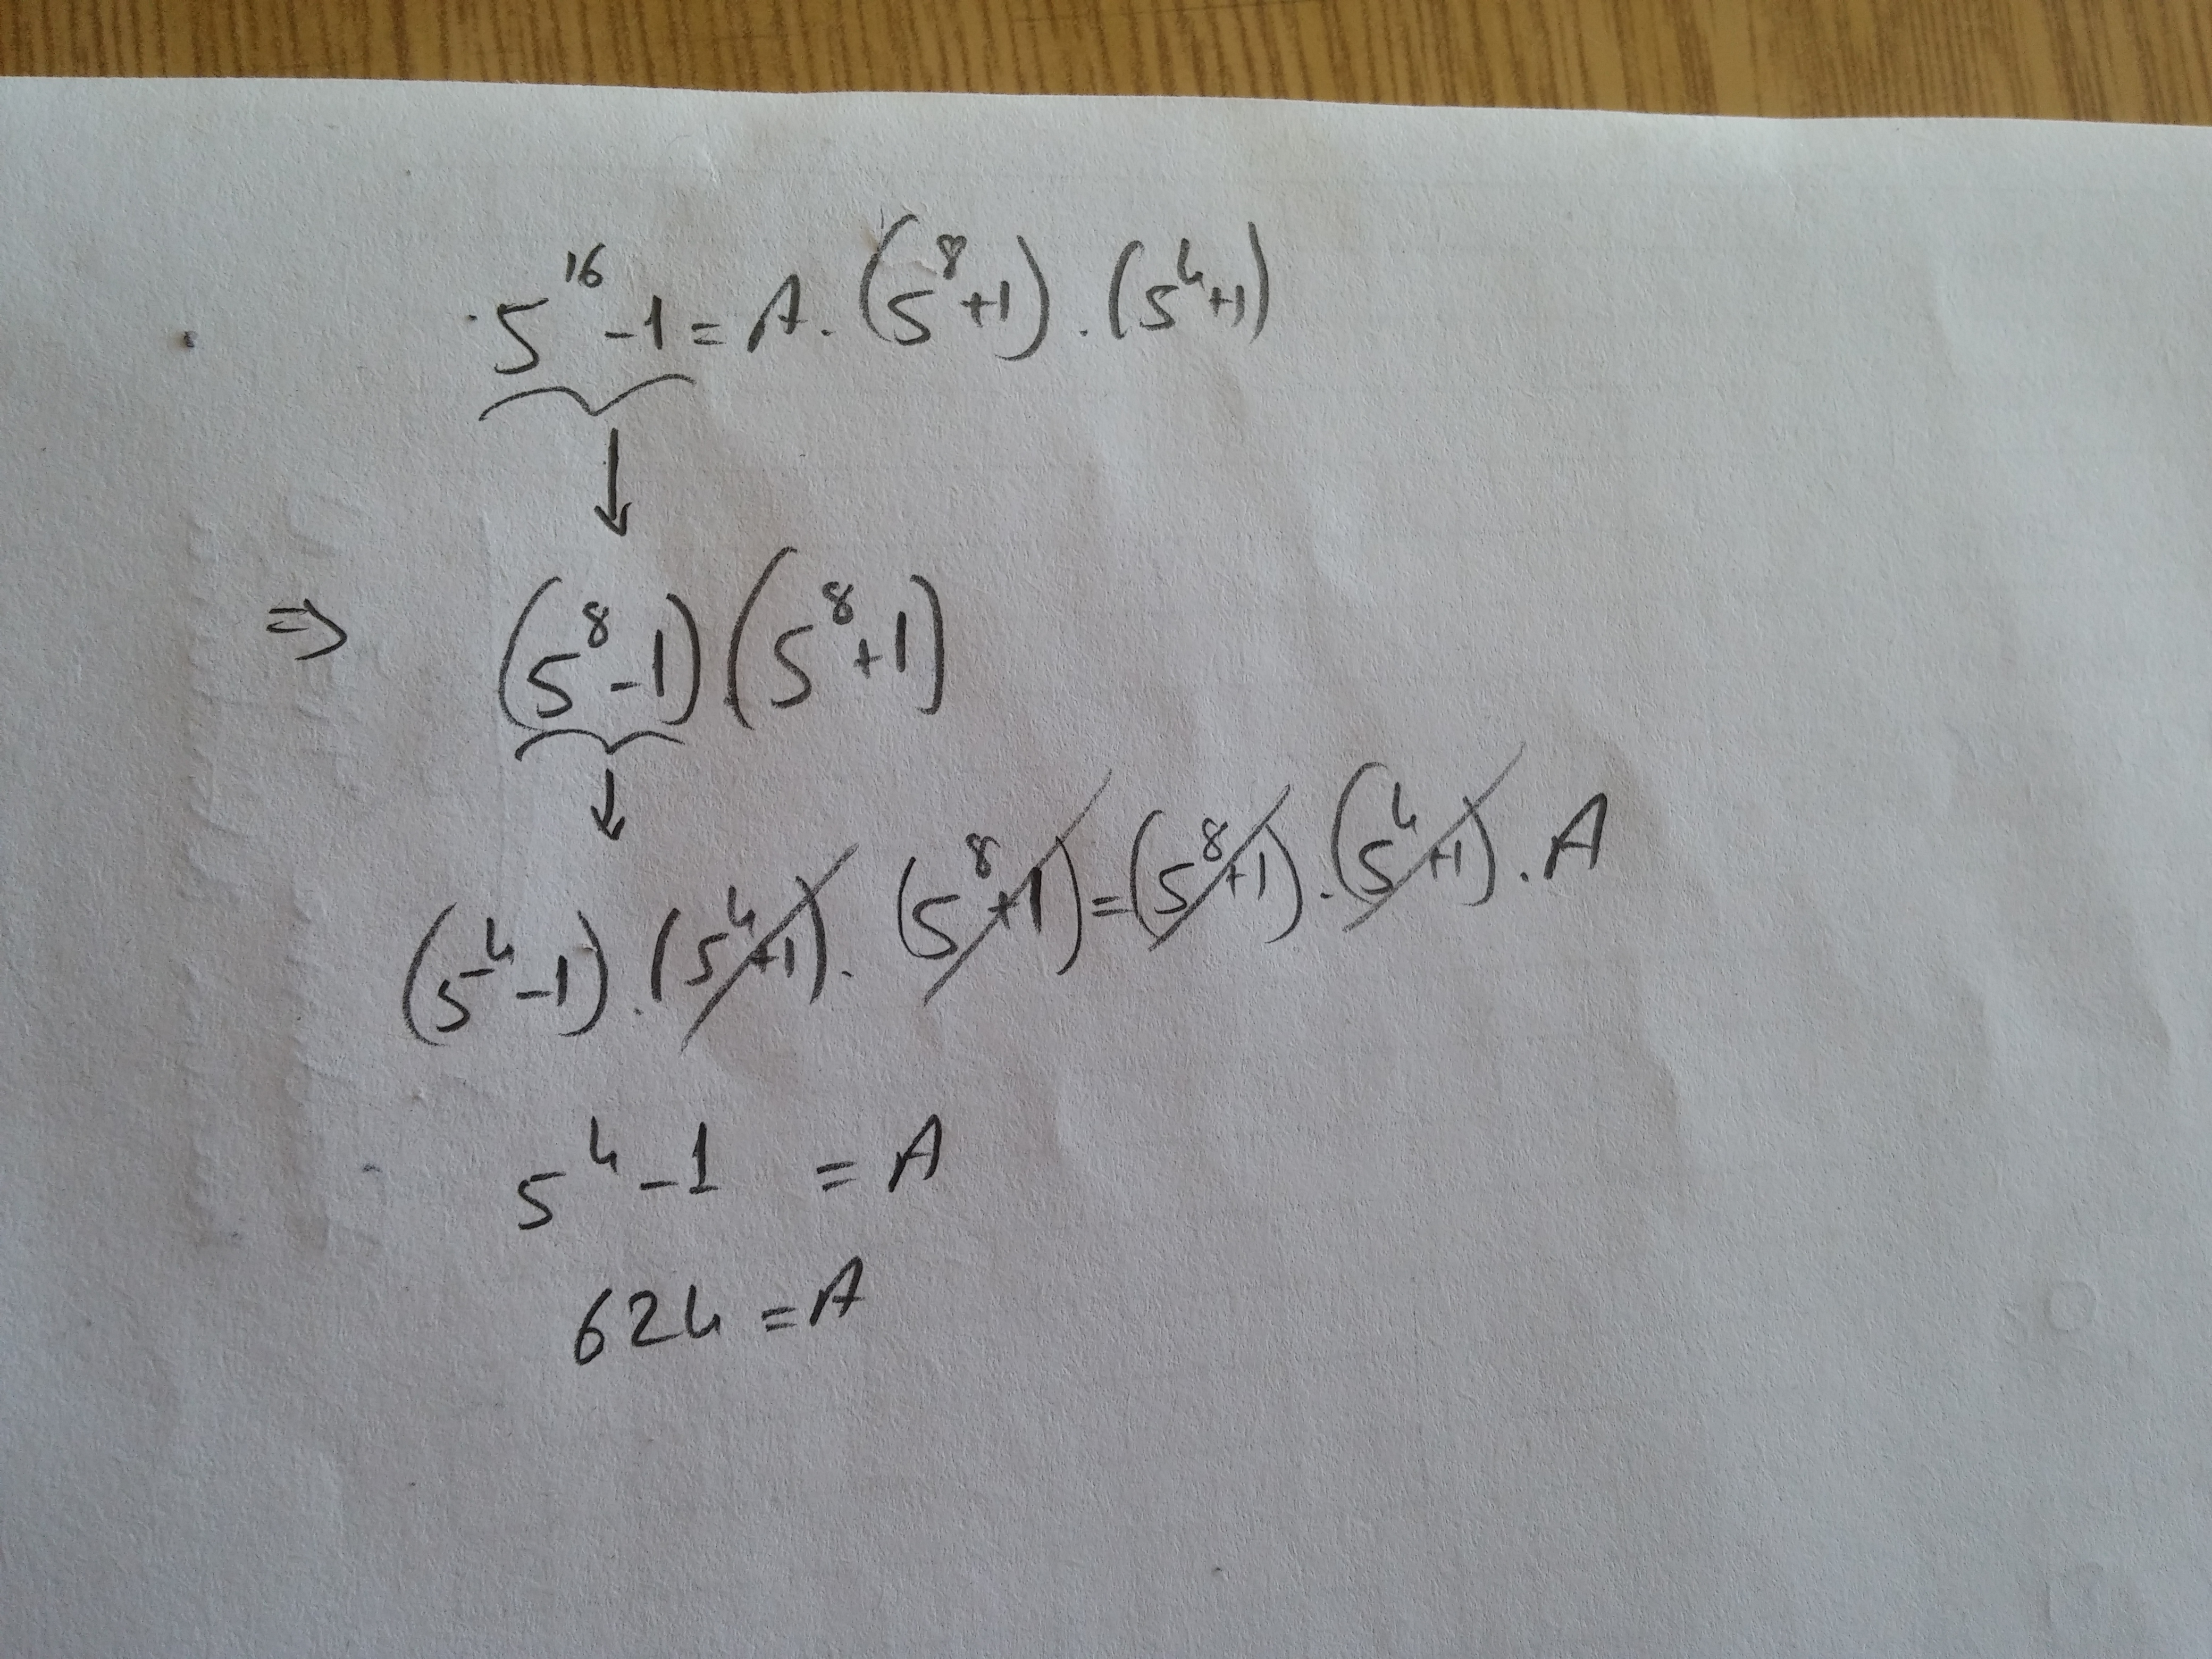 5^16 - 1 = A . (5^8 + 1) . (5^4 + 1)
↓
⇒ (5^8 - 1) (5^8 + 1)
↓
(5^4 - 1) . (5^4 + 1) . (5^8 + 1) = (5^8 + 1) . (5^4 + 1) . A
5^4 - 1 = A
624 = A